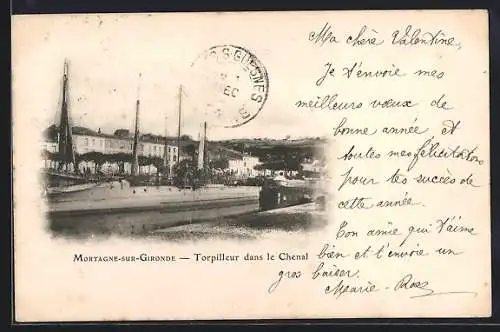 S GUESNES
DEC
MORTAGNE-SUR-GIRONDE — Torpilleur dans le Chenal
Ma chère Valentine,
Je t'envoie mes
meilleurs vœux de
bonne année et
toutes mes félicitations
pour tes succès de
cette année.
Ton amie qui t'aime
bien et t'envoie un
gros baiser.
Marie-